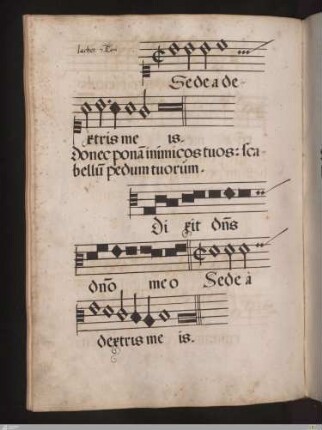 Sede a de-
xtris me is.
donec ponā inimicos tuos: sca-
belluī pedum tuorum.
Di xit dn̄s
dn̄o me o Sede à
dextris me is.